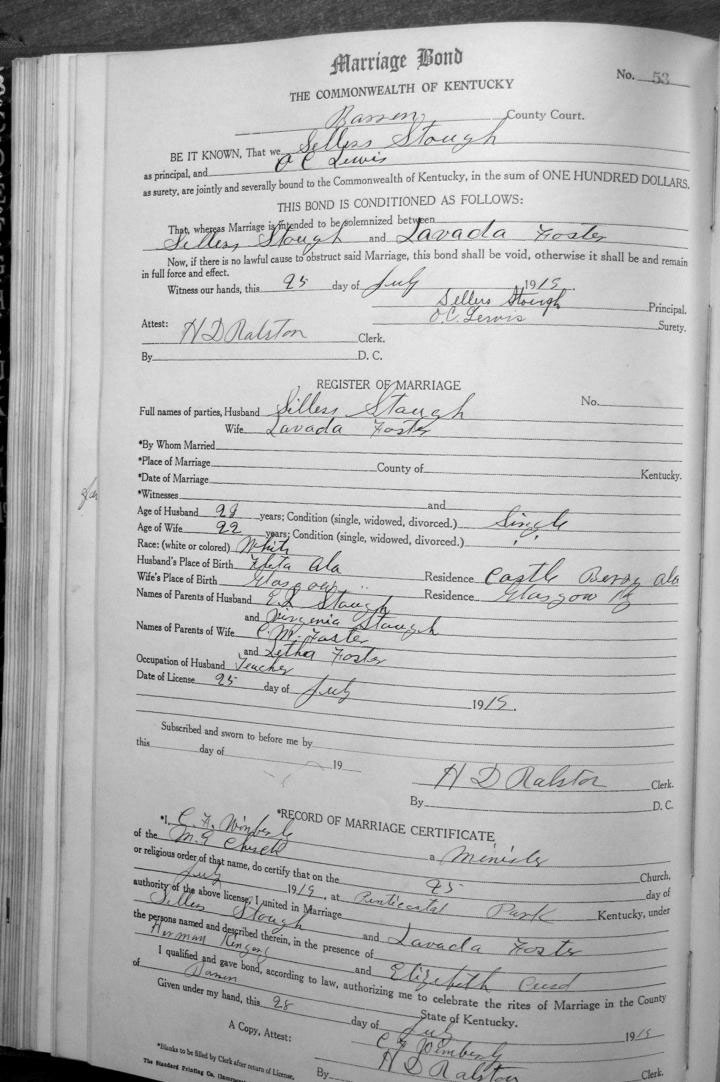 Marriage Bond
No. 53
THE COMMONWEALTH OF KENTUCKY
Barren County Court.
BE IT KNOWN, That we Sellers Stough
as principal, and O C Lewis
as surety, are jointly and severally bound to the Commonwealth of Kentucky, in the sum of ONE HUNDRED DOLLARS.
THIS BOND IS CONDITIONED AS FOLLOWS:
That, whereas Marriage is intended to be solemnized between
Sillers Stough and Lavada Foster
Now, if there is no lawful cause to obstruct said Marriage, this bond shall be void, otherwise it shall be and remain
in full force and effect.
Witness our hands, this 25 day of July 1919
Sellers Stough Principal.
O.C. Lewis Surety.
Attest: H D Ralston Clerk.
By D. C.
REGISTER OF MARRIAGE
No.
Full names of parties, Husband Sillers Stough
Wife Lavada Foster
*By Whom Married
*Place of Marriage County of Kentucky.
*Date of Marriage
*Witnesses and
Age of Husband years; Condition (single, widowed, divorced.) Single
Age of Wife 22 years; Condition (single, widowed, divorced.) ''
Race: (white or colored) White
Husband's Place of Birth Ala Residence Castle Berry Ala
Wife's Place of Birth Glasgow '' Residence Glasgow Ky
Names of Parents of Husband Stough
and Virginia Stough
Names of Parents of Wife C.M. Foster
and Letha Foster
Occupation of Husband Teacher
Date of License 25 day of July 1919.
Subscribed and sworn to before me by
this day of 19
H D Ralston Clerk.
By D. C.
*RECORD OF MARRIAGE CERTIFICATE
*I, C. F. Wimberly a Minister
of the M.E Church Church,
or religious order of that name, do certify that on the 25 day of
July 1919, at Penticostal Park Kentucky, under
authority of the above license, I united in Marriage
Sillers Stough and Lavada Foster
the persons named and described therein, in the presence of
Herman and Elizabeth
I qualified and gave bond, according to law, authorizing me to celebrate the rites of Marriage in the County
of Barren State of Kentucky.
Given under my hand, this 28 day of July 1919
C F Wimberly
A Copy, Attest: H D Ralston Clerk.
By
*Blanks to be filled by Clerk after return of License.
The Standard Printing Co.